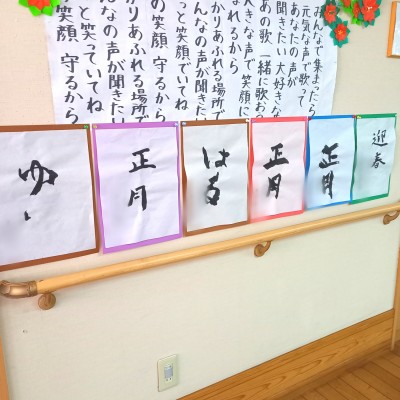 みんなで集まったら
元気な声で歌って
あなたの声が
聞きたい 大好きな
あの歌 一緒に歌お
大きな声で 笑顔に
なれるから
かりあふれる場所で
んなの声が聞きたい
っと笑顔で
の笑顔 守るから
かりあふれる場所で
んなの声が聞きたい
と笑っていてね
の笑顔 守るから
迎春
正月
正月
はる
正月
ゆ